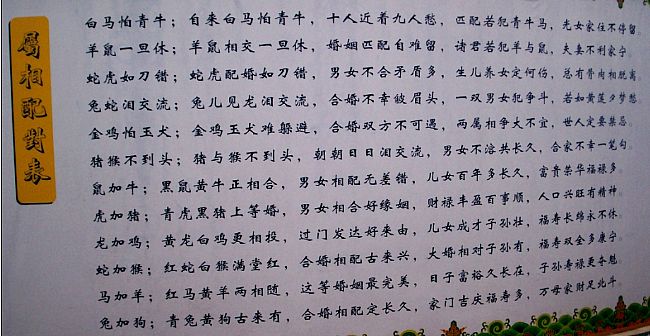 属相配對表
白马怕青牛；自来白马怕青牛，十人近着九人愁，匹配若犯青牛马，光女家住不停留。
羊鼠一旦休；羊鼠相交一旦休，婚姻匹配自难留，诸君若犯羊与鼠，夫妻不利家宁。
蛇虎如刀错；蛇虎配婚如刀错，男女不合矛盾多，生儿养女定何伤，总有骨肉相脱离。
兔蛇泪交流；兔儿见龙泪交流，合婚不幸皱眉头，一双男女犯争斗，若如黄莲夕梦愁。
金鸡怕玉犬；金鸡玉犬难躲避，合婚双方不可遇，两属相争大不宜，世人定要禁忌。
猪猴不到头；猪与猴不到头，朝朝日日泪交流，男女不溶共长久，合家不幸一笔勾。
鼠加牛；黑鼠黄牛正相合，男女相配无差错，儿女百年多长久，富贵荣华福禄多。
虎加猪；青虎黑猪上等婚，男女相合好缘姻，财禄丰盈百事顺，人口兴旺有精神。
龙加鸡；黄龙白鸡更相投，过门发达好来由，儿女成才子孙壮，福寿长绵永不休。
蛇加猴；红蛇白猴满堂红，合婚相配古来兴，大婚相对子孙有，福寿双全多康宁。
马加羊；红马黄羊两相随，这等婚姻最完美，日子富裕久长在，子孙寿禄更夺魁。
兔加狗；青兔黄狗古来有，合婚相配定长久，家门吉庆福寿多，万母家财足北斗。